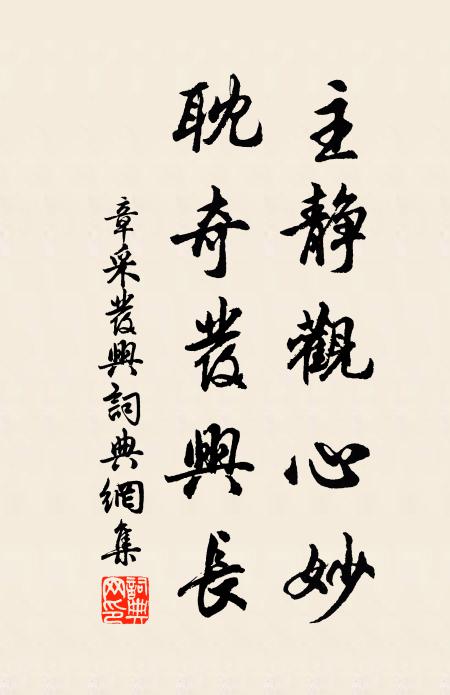 主靜觀心妙
耽奇發興長
章采發興詞典網集
詞典
网印